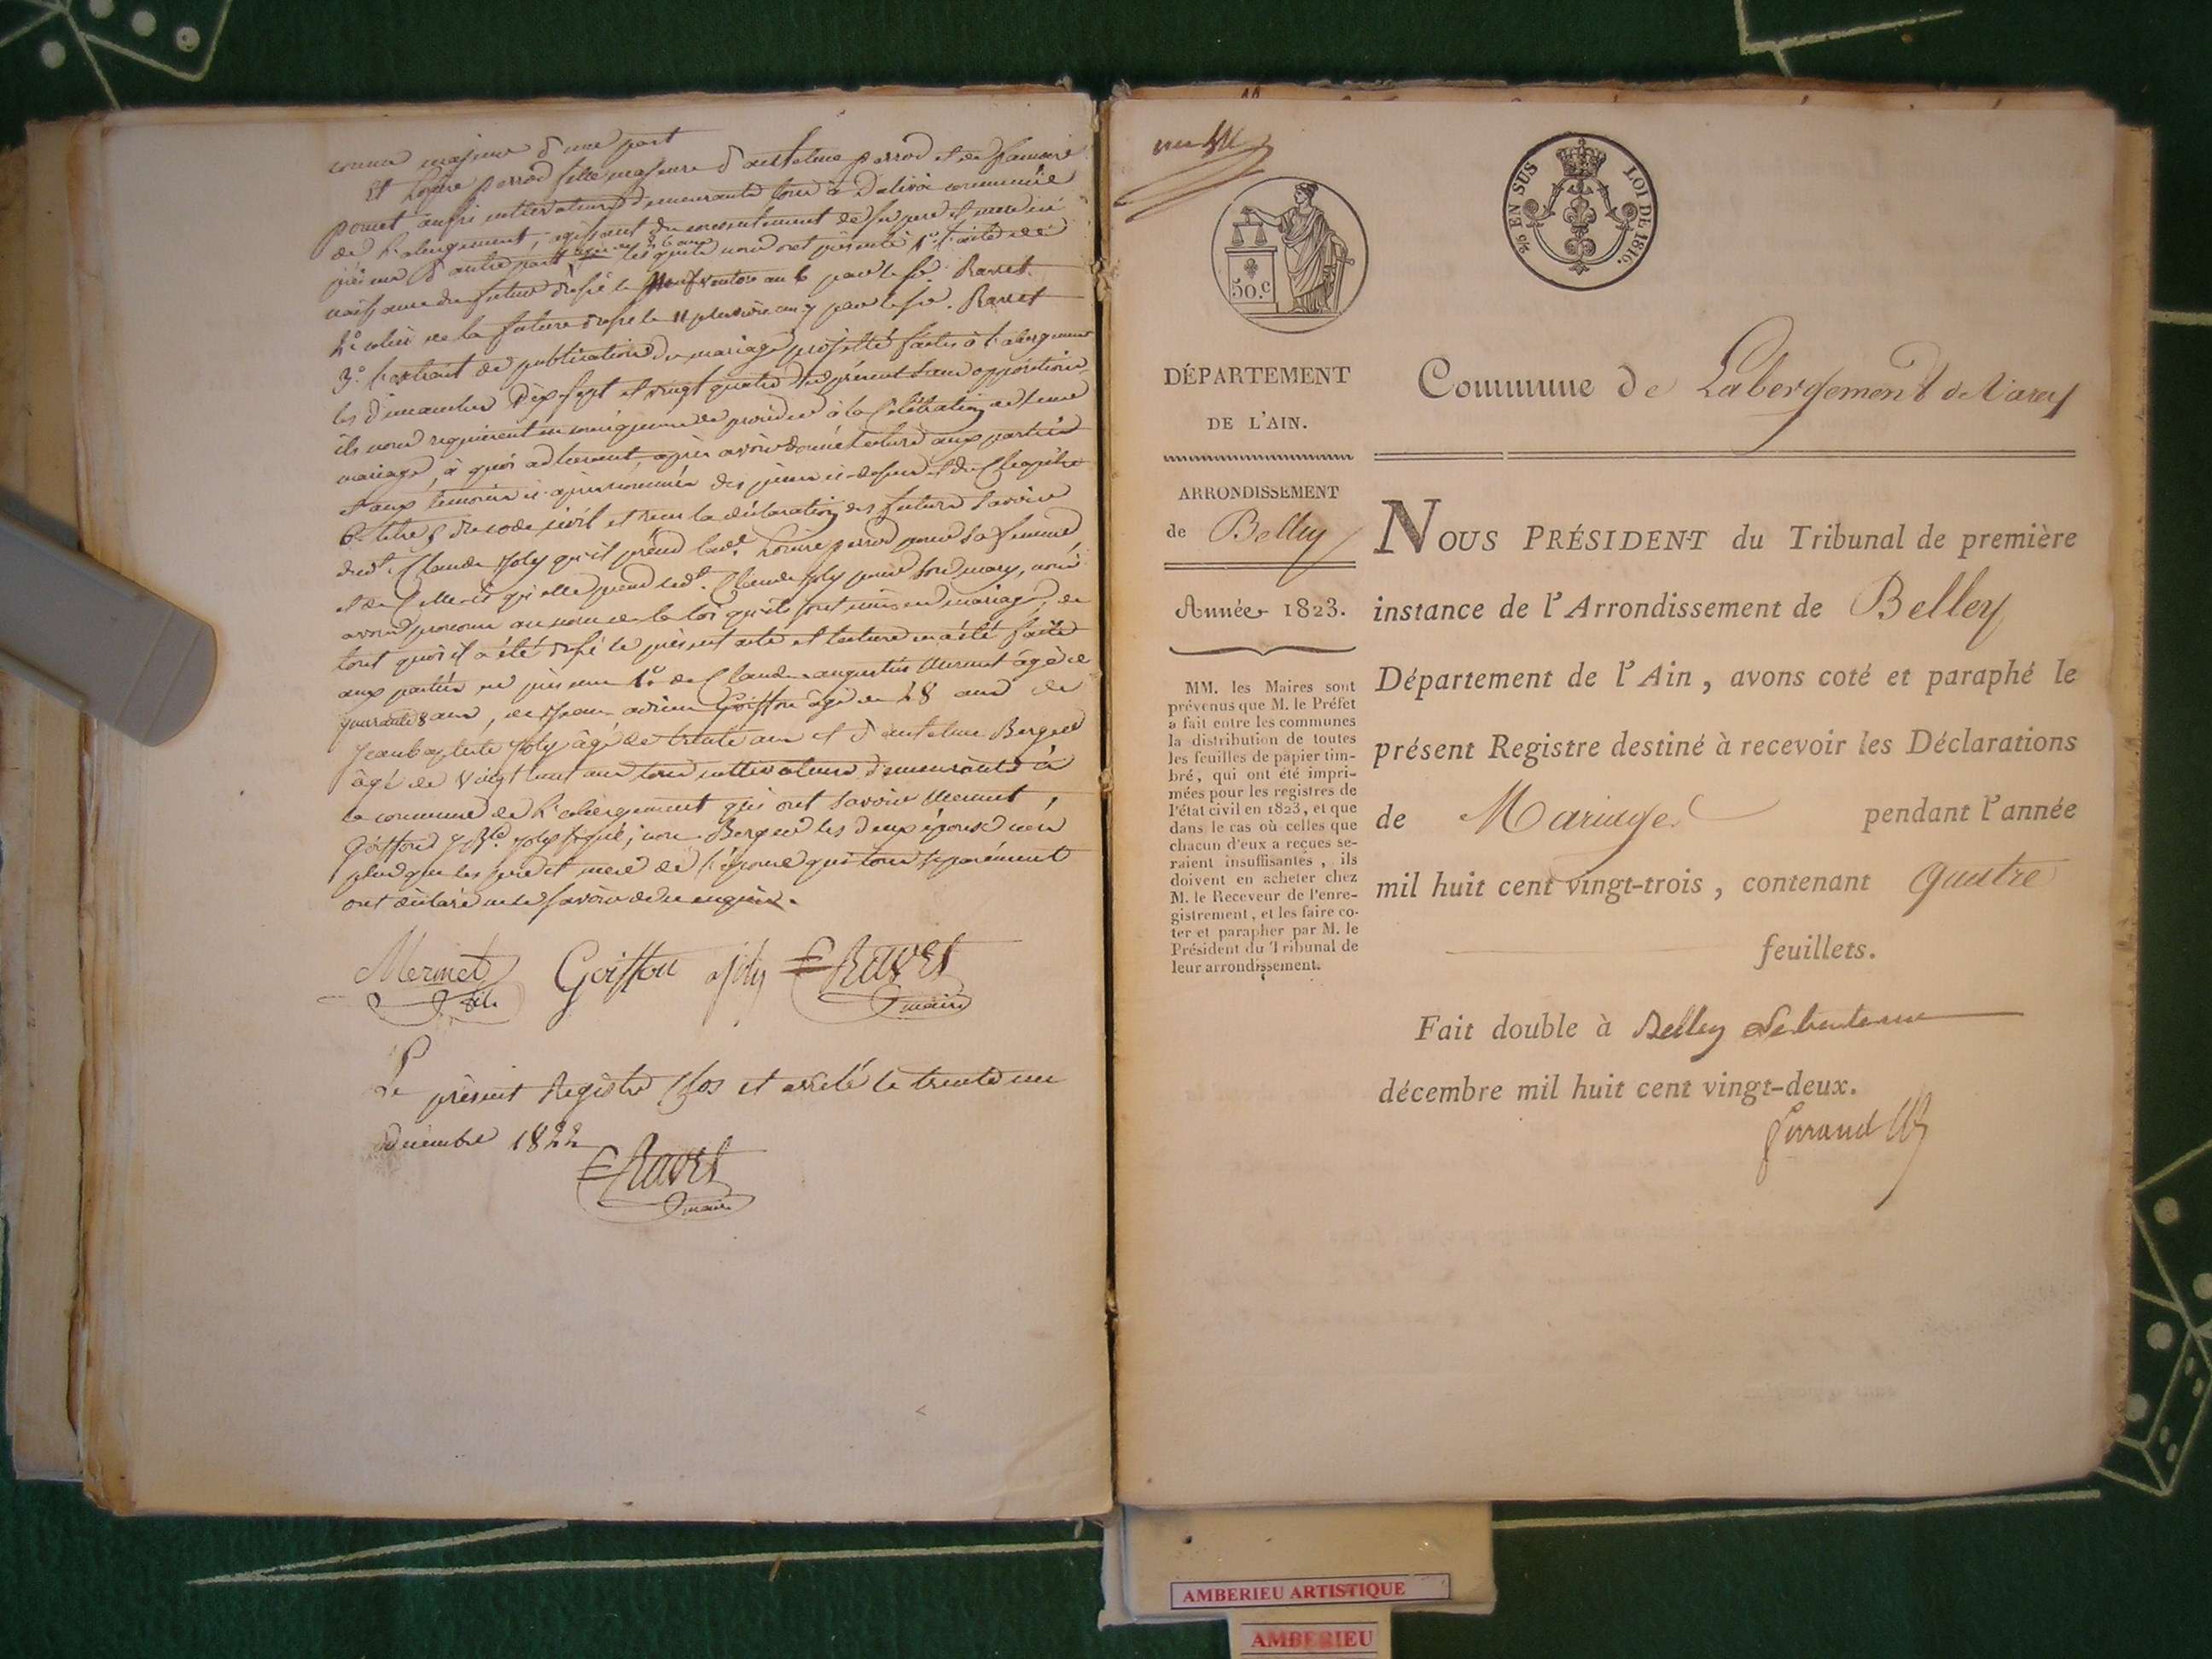 comme majeur d'une part
Et Louise perrod fille majeure d'anthelme perrod et de
pomet aussi cultivateurs demeurants tous à Dalivoi commune
de L'abergement, agissant du consentement de ses pere et mere ici
présens d'autre part lesquels nous ont présenté 1º l'acte de
naissance du futur dressé le neuf ventose an 6 par le sr. Ravet
2º celui de la future dressé le 11 pluviose an 7 par le sr. Ravet
3º l'extrait de publications du mariage projetté faites à l'abergement
les dimanches Dix sept et vingt quatre du présent sans oppositions
ils nous requierent en conséquence de procéder à la Célébration de leur
mariage, à quoi adherant, après avoir donné lecture aux parties
et aux temoins ci-après nommés des pieces ci-dessus et du Chapitre
6 titre 5 du code civil et reçu la déclaration des futurs savoir
dudt. Claude Joly qu'il prend ladt. Louise perrod pour sa femme
et de Celle-ci qu'elle prend ledt. Claude Joly pour son mary, nous
avons prononcé au nom de la loi qu'ils sont unis en mariage, de
tout quoi il a été dressé le présent acte et lecture en a été faite
aux parties en présence 1º de Claude augustin Mermet âgé de
quarante 8 ans, de adrien Goiffon âgé de 28 ans de
Jean baptiste Joly âgé de trente ans et d'anthelme Berger
âgé de vingt huit ans tous cultivateurs demeurants à
la commune de L'abergement qui ont savoir Mermet,
Goiffon Joly signé, non Berger les deux époux non
plus que les pere et mere de l'épouse qui tous séparément
ont déclaré ne le savoir de ce enquis.
Mermet Goiffon Joly Ravet
maire
Le
présent Registre Clos et arrêté le trente un
décembre 1822
Ravet
maire
50.c
% EN SUS LOI DE 1816.
DÉPARTEMENT
DE L'AIN.
ARRONDISSEMENT
de Belley
Année 1823.
MM. les Maires sont
prévenus que M. le Préfet
a fait entre les communes
la distribution de toutes
les feuilles de papier tim-
bré, qui ont été impri-
mées pour les registres de
l'état civil en 1823, et que
dans le cas où celles que
chacun d'eux a reçues se-
raient insuffisantes, ils
doivent en acheter chez
M. le Receveur de l'enre-
gistrement, et les faire co-
ter et parapher par M. le
Président du Tribunal de
leur arrondissement.
Commune de Labergement de Varey
NOUS PRÉSIDENT du Tribunal de première
instance de l'Arrondissement de Belley
Département de l'Ain, avons coté et paraphé le
présent Registre destiné à recevoir les Déclarations
de Mariages pendant l'année
mil huit cent vingt-trois, contenant quatre
feuillets.
Fait double à Belley le trente un
décembre mil huit cent vingt-deux.
AMBERIEU ARTISTIQUE
AMBERIEU